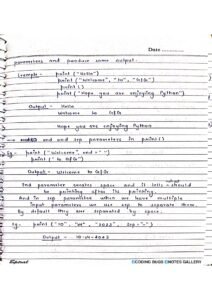 Date ......
parameters and produce some output.
Example - print ("Hello")
print ("Welcome", "to", "GfG")
print ()
print ("Hope you are enjoying Python")
Output - Hello
Welcome to GfG
Hope you are enjoying Python
end and sep parameters in print()
Eg. print ("Welcome", end = " ")
print ("to GfG")
Output - Welcome to GfG
End parameter creates space and it tells what should
to printing after its printing.
And in sep parameter when we have multiple
input parameters we use sep to separate them.
By default they are separated by space.
Eg. print ("10", "2022", sep = "-")
Output -
CODING BUGS NOTES GALLERY